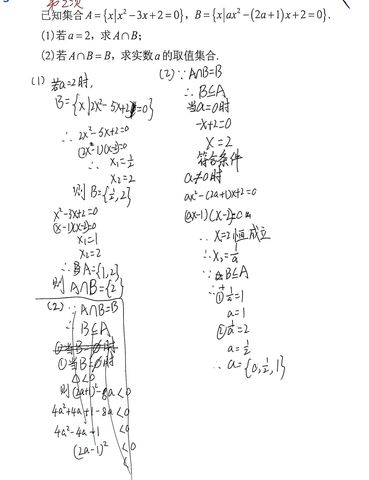 第2次
已知集合 A={x|x²-3x+2=0}, B={x|ax²-(2a+1)x+2=0}.
(1)若 a=2, 求 A∩B;
(2)若 A∩B=B, 求实数 a 的取值集合.
(1) 若a=2时,
B={x|2x²-5x+2=0}
∴ 2x²-5x+2=0
(2x-1)(x-2)=0
∴ x₁=1/2
x₂=2
则 B={1/2,2}
x²-3x+2=0
(x-1)(x-2)=0
x₁=1
x₂=2
∴ A={1,2}
则 A∩B={2}
(2) ∵ A∩B=B
∴ B⊆A
①当B=∅时
①当B=∅时
△<0
则(2a+1)²-8a<0
4a²+4a+1-8a<0
4a²-4a+1<0
(2a-1)²<0
(2) ∵ A∩B=B
∴ B⊆A
当a=0时
-x+2=0
x=2
符合条件
a≠0时
ax²-(2a+1)x+2=0
(ax-1)(x-2)=0
∴ x₁=2恒成立
∴ x₂=1/a
∵ B⊆A
∴ ①1/a=1
a=1
②1/a=2
a=1/2
∴ a={0,1/2,1}